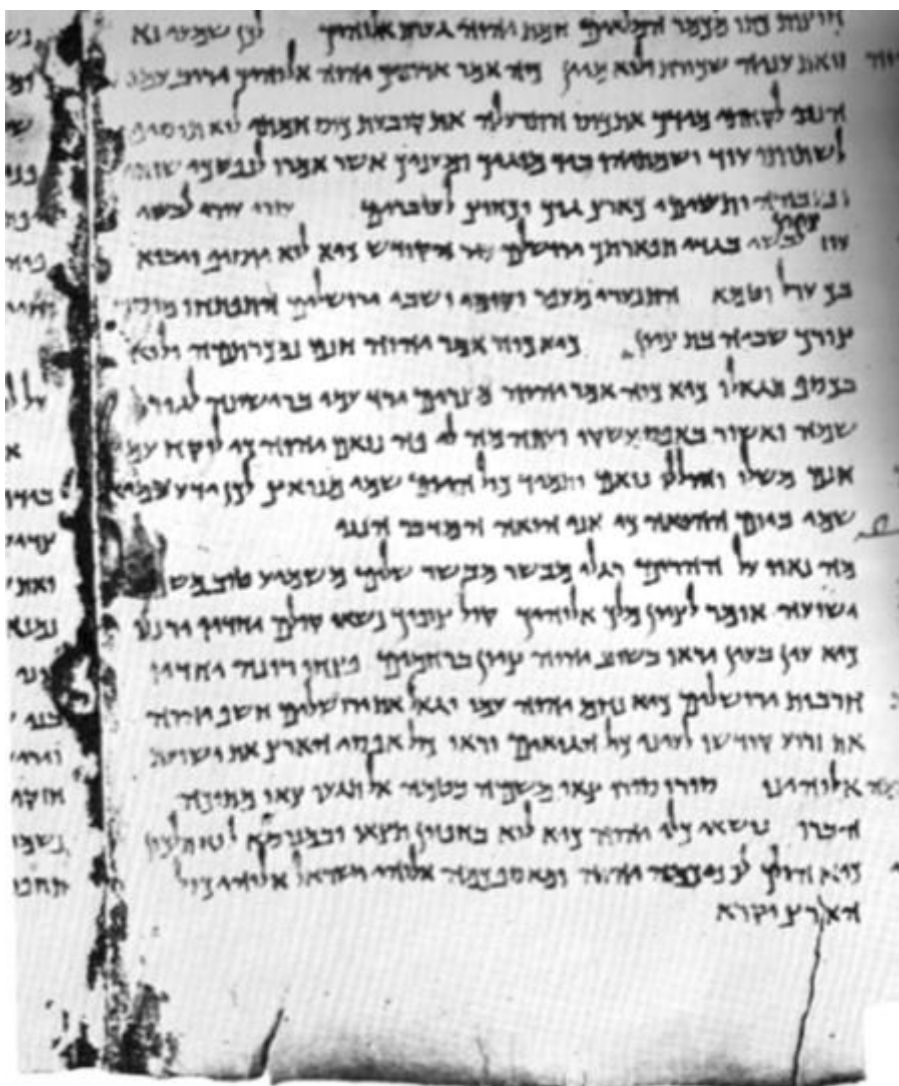 חוצות כתו מכמר המלאים חמת יהוה גערת אלוהיך לכן שמעי נא
זואת עניה שכורת ולוא מיין כוה אמר אדוניך יהוה אלוהיך יריב עמו
הנני לקחתי מידך את כוס התרעלה את קובעת כוס חמתי לוא תוסיפי
לשתותו עוד ושמתיהו ביד מוגיך ומעניך אשר אמרו לנפשכי שוחי
ונעבורה ותשימי כארץ גוך וכחוץ לעוברים עורי עורי לבשי
ציון
עוז לבשי בגדי תפארתך ירושלים עיר הקודש כיא לוא יוסיף ויבוא
בך ערל וטמא התנערי מעפר וקומי ושבי ירושלים התפתחו מוסרי
צורך שביה בת ציון כיא כוה אמר יהוה חנם נמכרתמה ולוא
בכסף תגאלו כיא כוה אמר יהוה מצרים ירד עמי ברישונה לגור
שמה ואשור באפס עשקו ועתה מה לי פה נואם יהוה כי לוקח עמי
חנם משלו והוללו נואם ותמיד כול היום שמי מנואץ לכן ידע עמי
שמי ביום ההואה כי אני הואה המדבר הנני
מה נאוו על ההרים רגלי מבשר מבשר שלום משמיע טוב
ישועה אומר לציון מלך אלוהיך קול צופיך נשאו קולם יחדיו ירננו
כיא עין בעין יראו בשוב יהוה ציון ברחמים פצחו רונה יחדיו
חרבות ירושלים כיא נחם יהוה עמו וגאל את ירושלים חשף יהוה
את זרוע קודשו לעיני כול הגואים וראו כול אפסי הארץ את ישועת
אלוהינו סורו סורו צאו משמה בטמה אל תגעו צאו מתוכה
הברו נושאי כלי יהוה כיא לוא בחפזון תצאו ובמנוסה לוא תלכון
כיא הולך לפניכמה יהוה ומאספכמה אלוהי ישראל אלוהי כול
הארץ יקרא